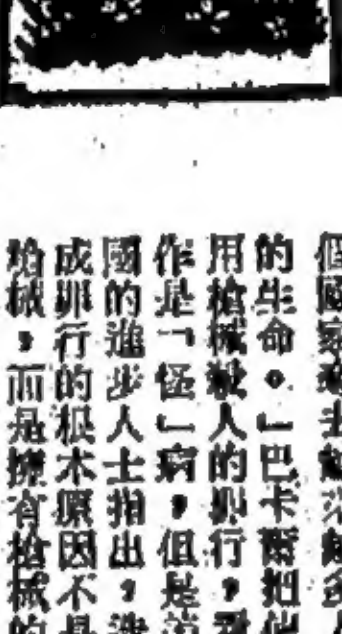 個國家
的生命。」巴卡爾把
用槍械殺人的罪行,
作是「怪」病,但是
國的進步人士指出,
成罪行的根本原因不是
槍械,而是擁有槍械的